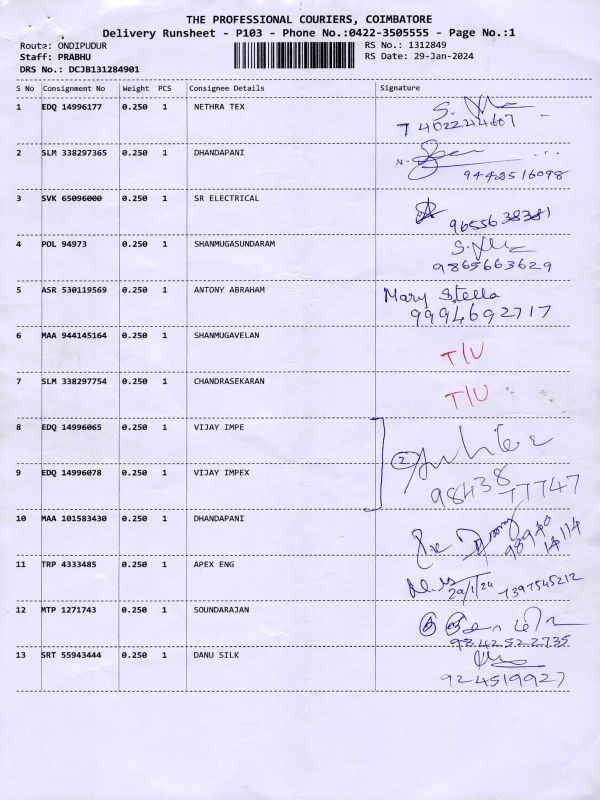 THE PROFESSIONAL COURIERS, COIMBATORE
Delivery Runsheet - P103 - Phone No.:0422-3505555 - Page No.:1
Route: ONDIPUDUR
Staff: PRABHU
DRS No.: DCJB131284901
RS No.: 1312849
RS Date: 29-Jan-2024
S No Consignment No Weight PCS Consignee Details Signature
1 EDQ 14996177 0.250 1 NETHRA TEX
2 SLM 338297365 0.250 1 DHANDAPANI
94428516098
3 SVK 65096000 0.250 1 SR ELECTRICAL
9655638381
4 POL 94973 0.250 1 SHANMUGASUNDARAM
9865663629
5 ASR 530119569 0.250 1 ANTONY ABRAHAM Mary Stella
9994692717
6 MAA 944145164 0.250 1 SHANMUGAVELAN
T/U
7 SLM 338297754 0.250 1 CHANDRASEKARAN
T/U
8 EDQ 14996065 0.250 1 VIJAY IMPE
2
9 EDQ 14996078 0.250 1 VIJAY IMPEX
98438
77747
10 MAA 101583430 0.250 1 DHANDAPANI
98940
14114
11 TRP 4333485 0.250 1 APEX ENG
29/1/24 7397545212
12 MTP 1271743 0.250 1 SOUNDARAJAN
9842522735
13 SRT 55943444 0.250 1 DANU SILK
924519927